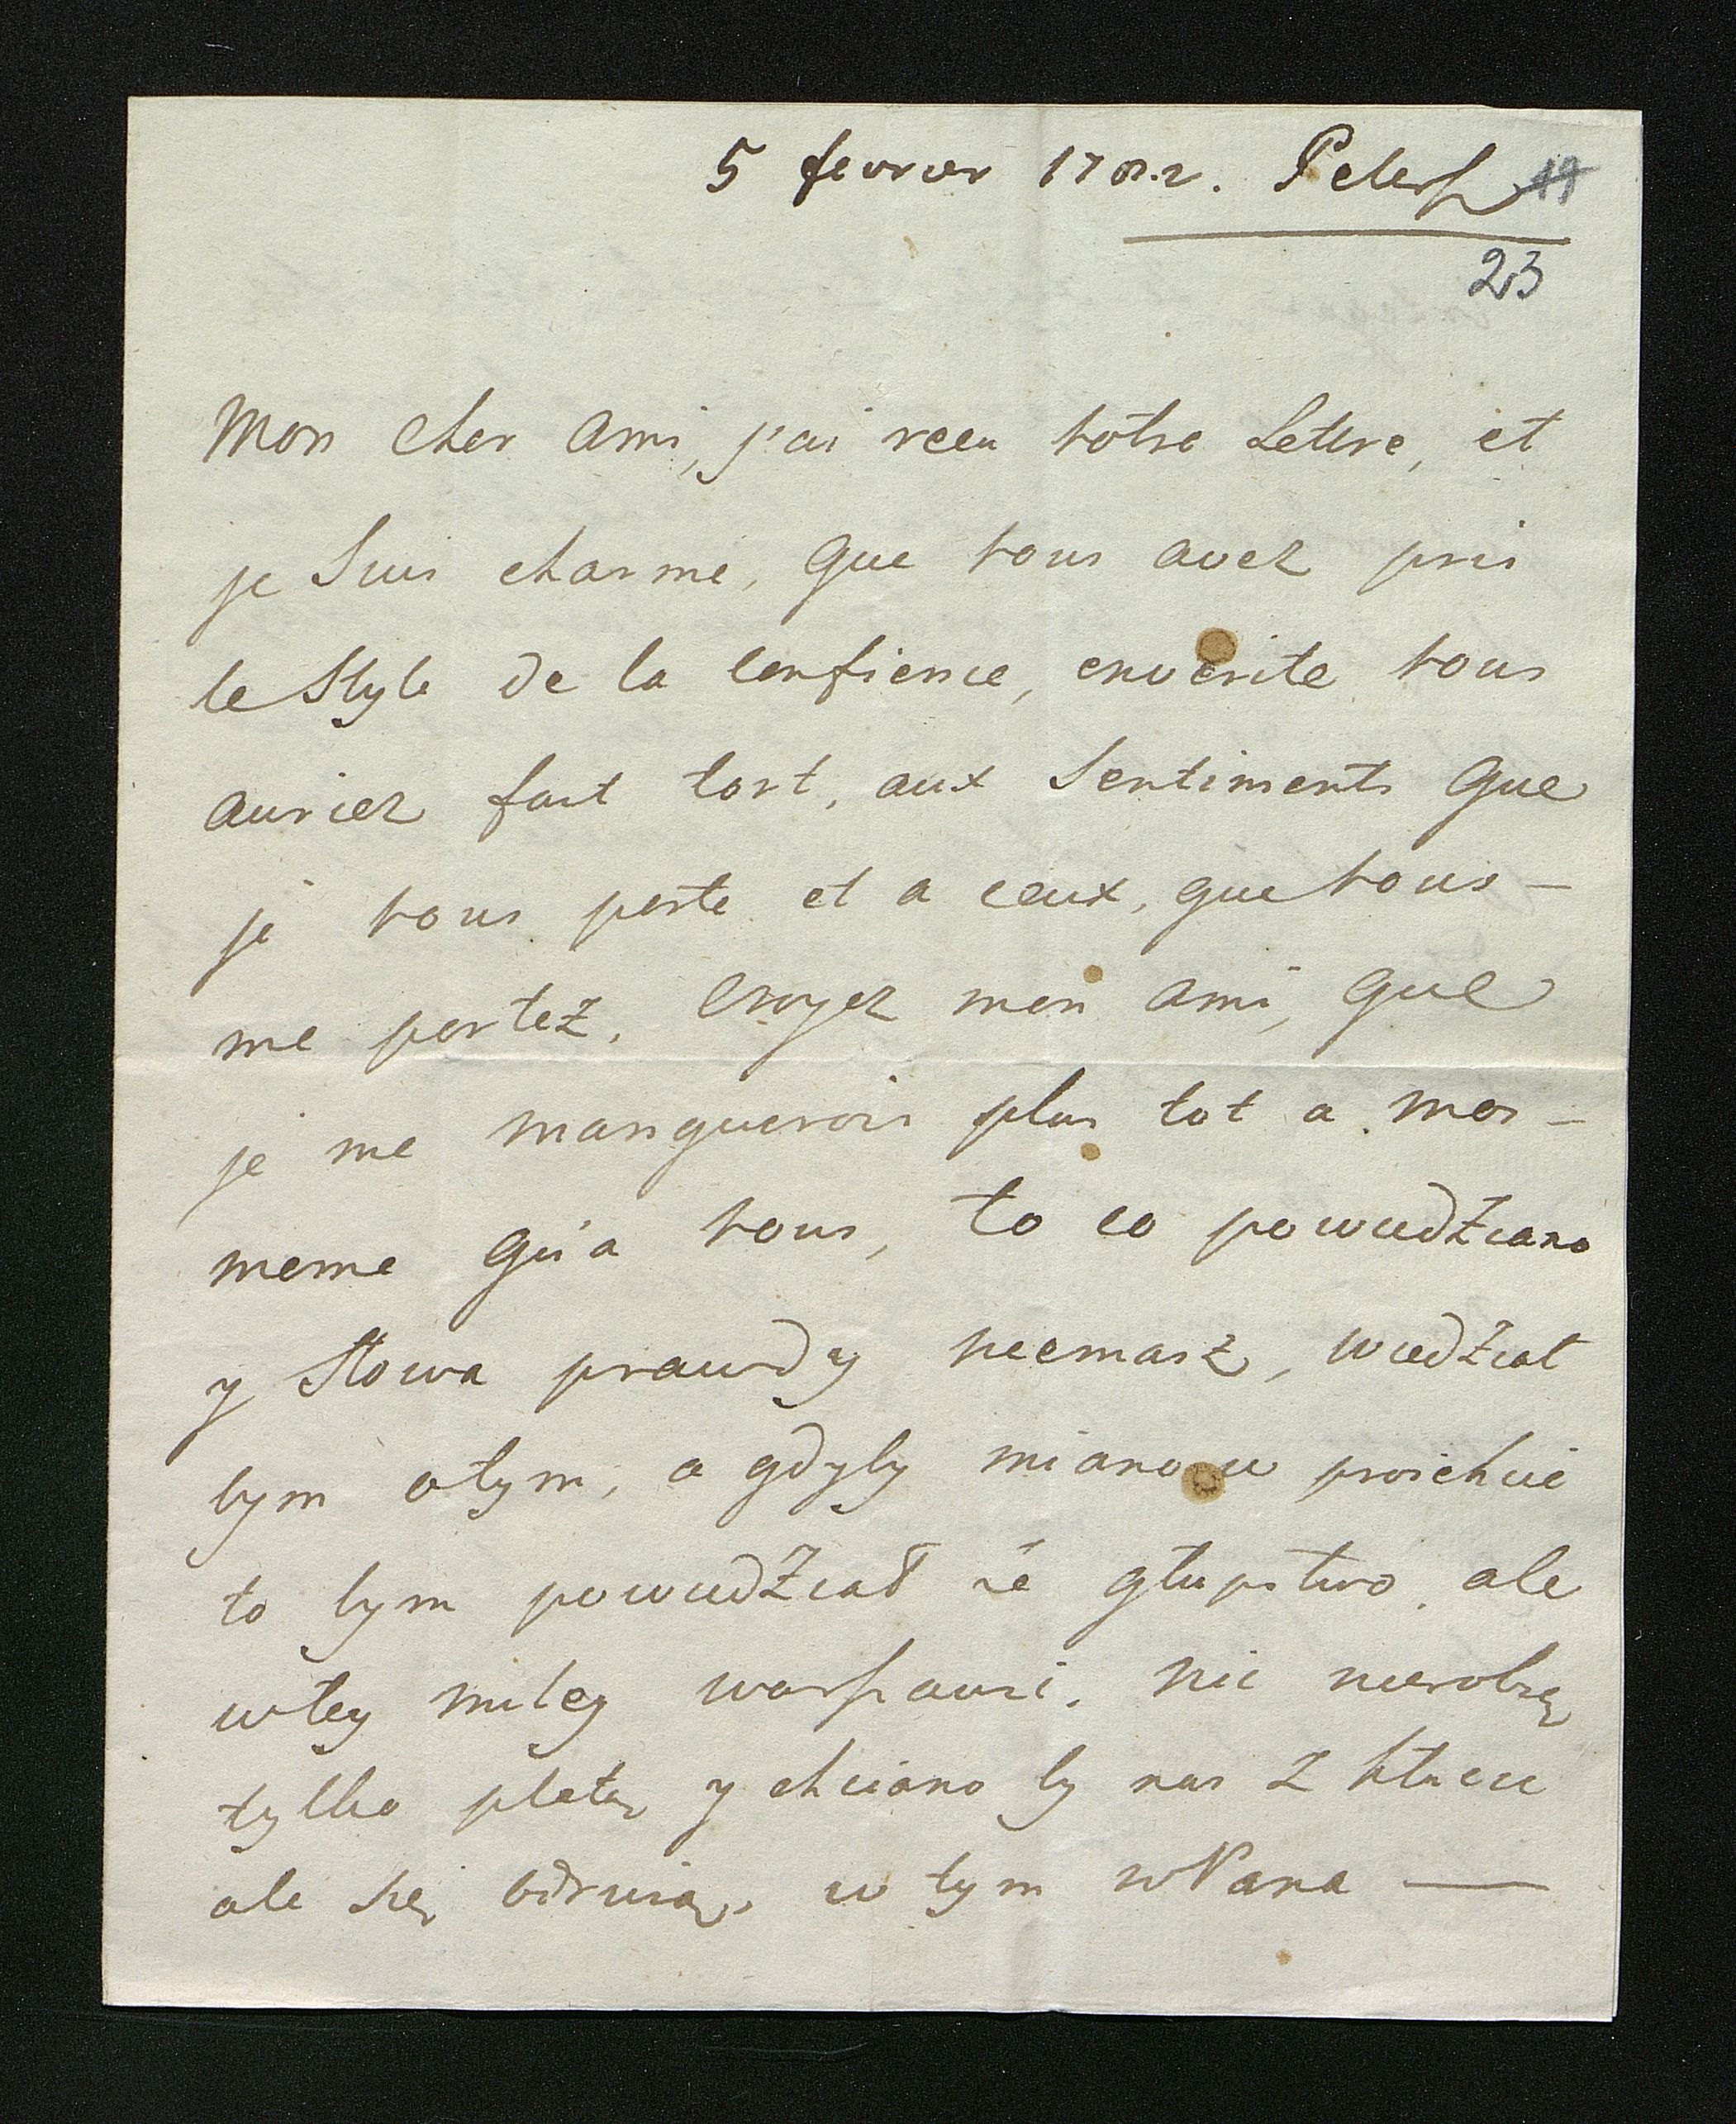 5 fevrier 1782. Petersb
19
23
Mon cher Ami, j'ai recu votre Lettre, et
je Suis charmé, que vous avez pris
le Style de la Confience, enverite vous
auriez fait tort, aux Sentiments que
je vous porte et a ceux, que vous –
me portez, Croyez mon ami, que
je me manquerois plus tot a moi –
meme qu'a vous, to co powiedziano
y Słowa prawdy niemasz, wiedział
bym otym, a gdyby miano u prosić
to bym powiedział że głupstwo, ale
wtey miley warszawie, nic nierobią
tylko pletą y chciano by nas z kłucić
ale się odrwią, w tym WPana —